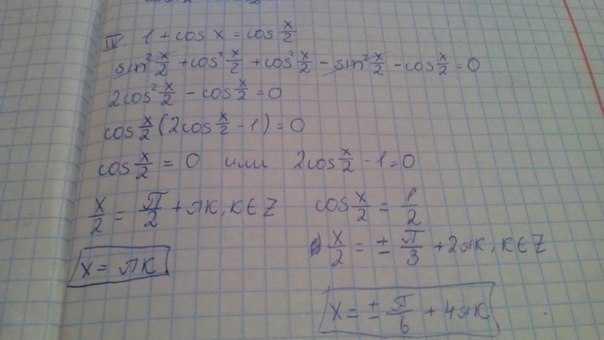 IV 1 + cos x = cos x/2
sin² x/2 + cos² x/2 + cos² x/2 − sin² x/2 − cos x/2 = 0
2cos² x/2 − cos x/2 = 0
cos x/2 (2cos x/2 − 1) = 0
cos x/2 = 0 или 2cos x/2 − 1 = 0
x/2 = π/2 + πк, к∈Z
x = πк
cos x/2 = 1/2
x/2 = ± π/3 + 2πк, к∈Z
x = ± π/6 + 4πк